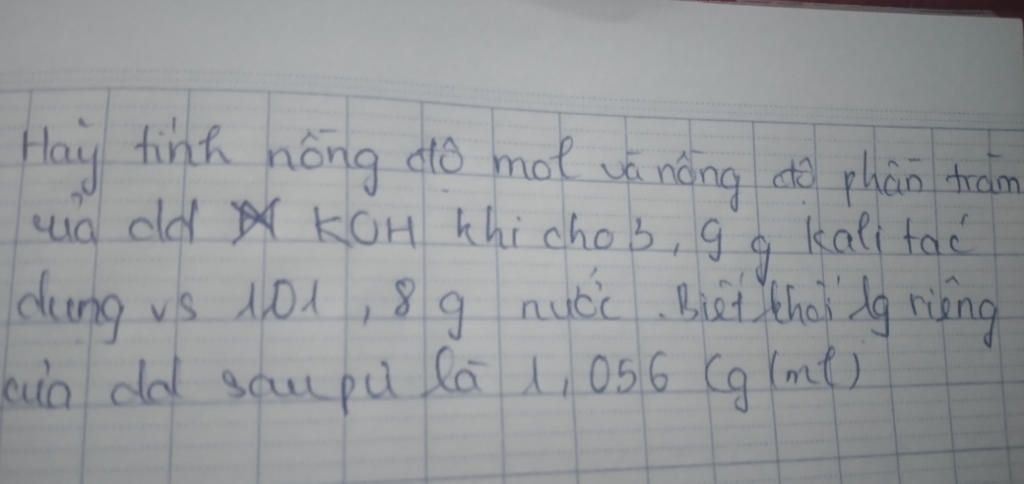 Hãy tính nồng độ mol và nồng độ phần trăm
của dd KOH khi cho 3,9 g kali tác
dụng vs 101,8 g nước. Biết khối lg riêng
của dd sau pứ là 1,056 (g/ml)